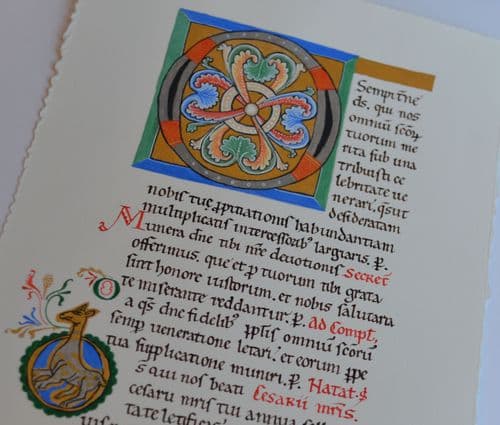 Sempit̄ne
d̄s, qui nos
omniū sc̄oꝝ
tuorum me
rita sub una
tribuisti ce
lebritate ue
nerari, q̄sut
desideratam
nobis tuę ꝓpitiationis habundantiam
multiplicatis intercessoribꝰ largiaris. ꝑ.
Munera dn̄e tibi nr̄e deuotionis Secret
offerimus, que et ꝓ tuorum tibi grata
sint honore iustorum. et nobis salutaria
te miserante reddantur. ꝑ. Ad Compl̄.
Da qs̄ dn̄e fidelibꝰ pplis omniū sc̄orū
semp ueneratione letari, et eorum ppe
tua supplicatione muniri. ꝑ. Natał S
s qui nos beati Cesarii mr̄is.
cesarii mr̄is tui annua
tate